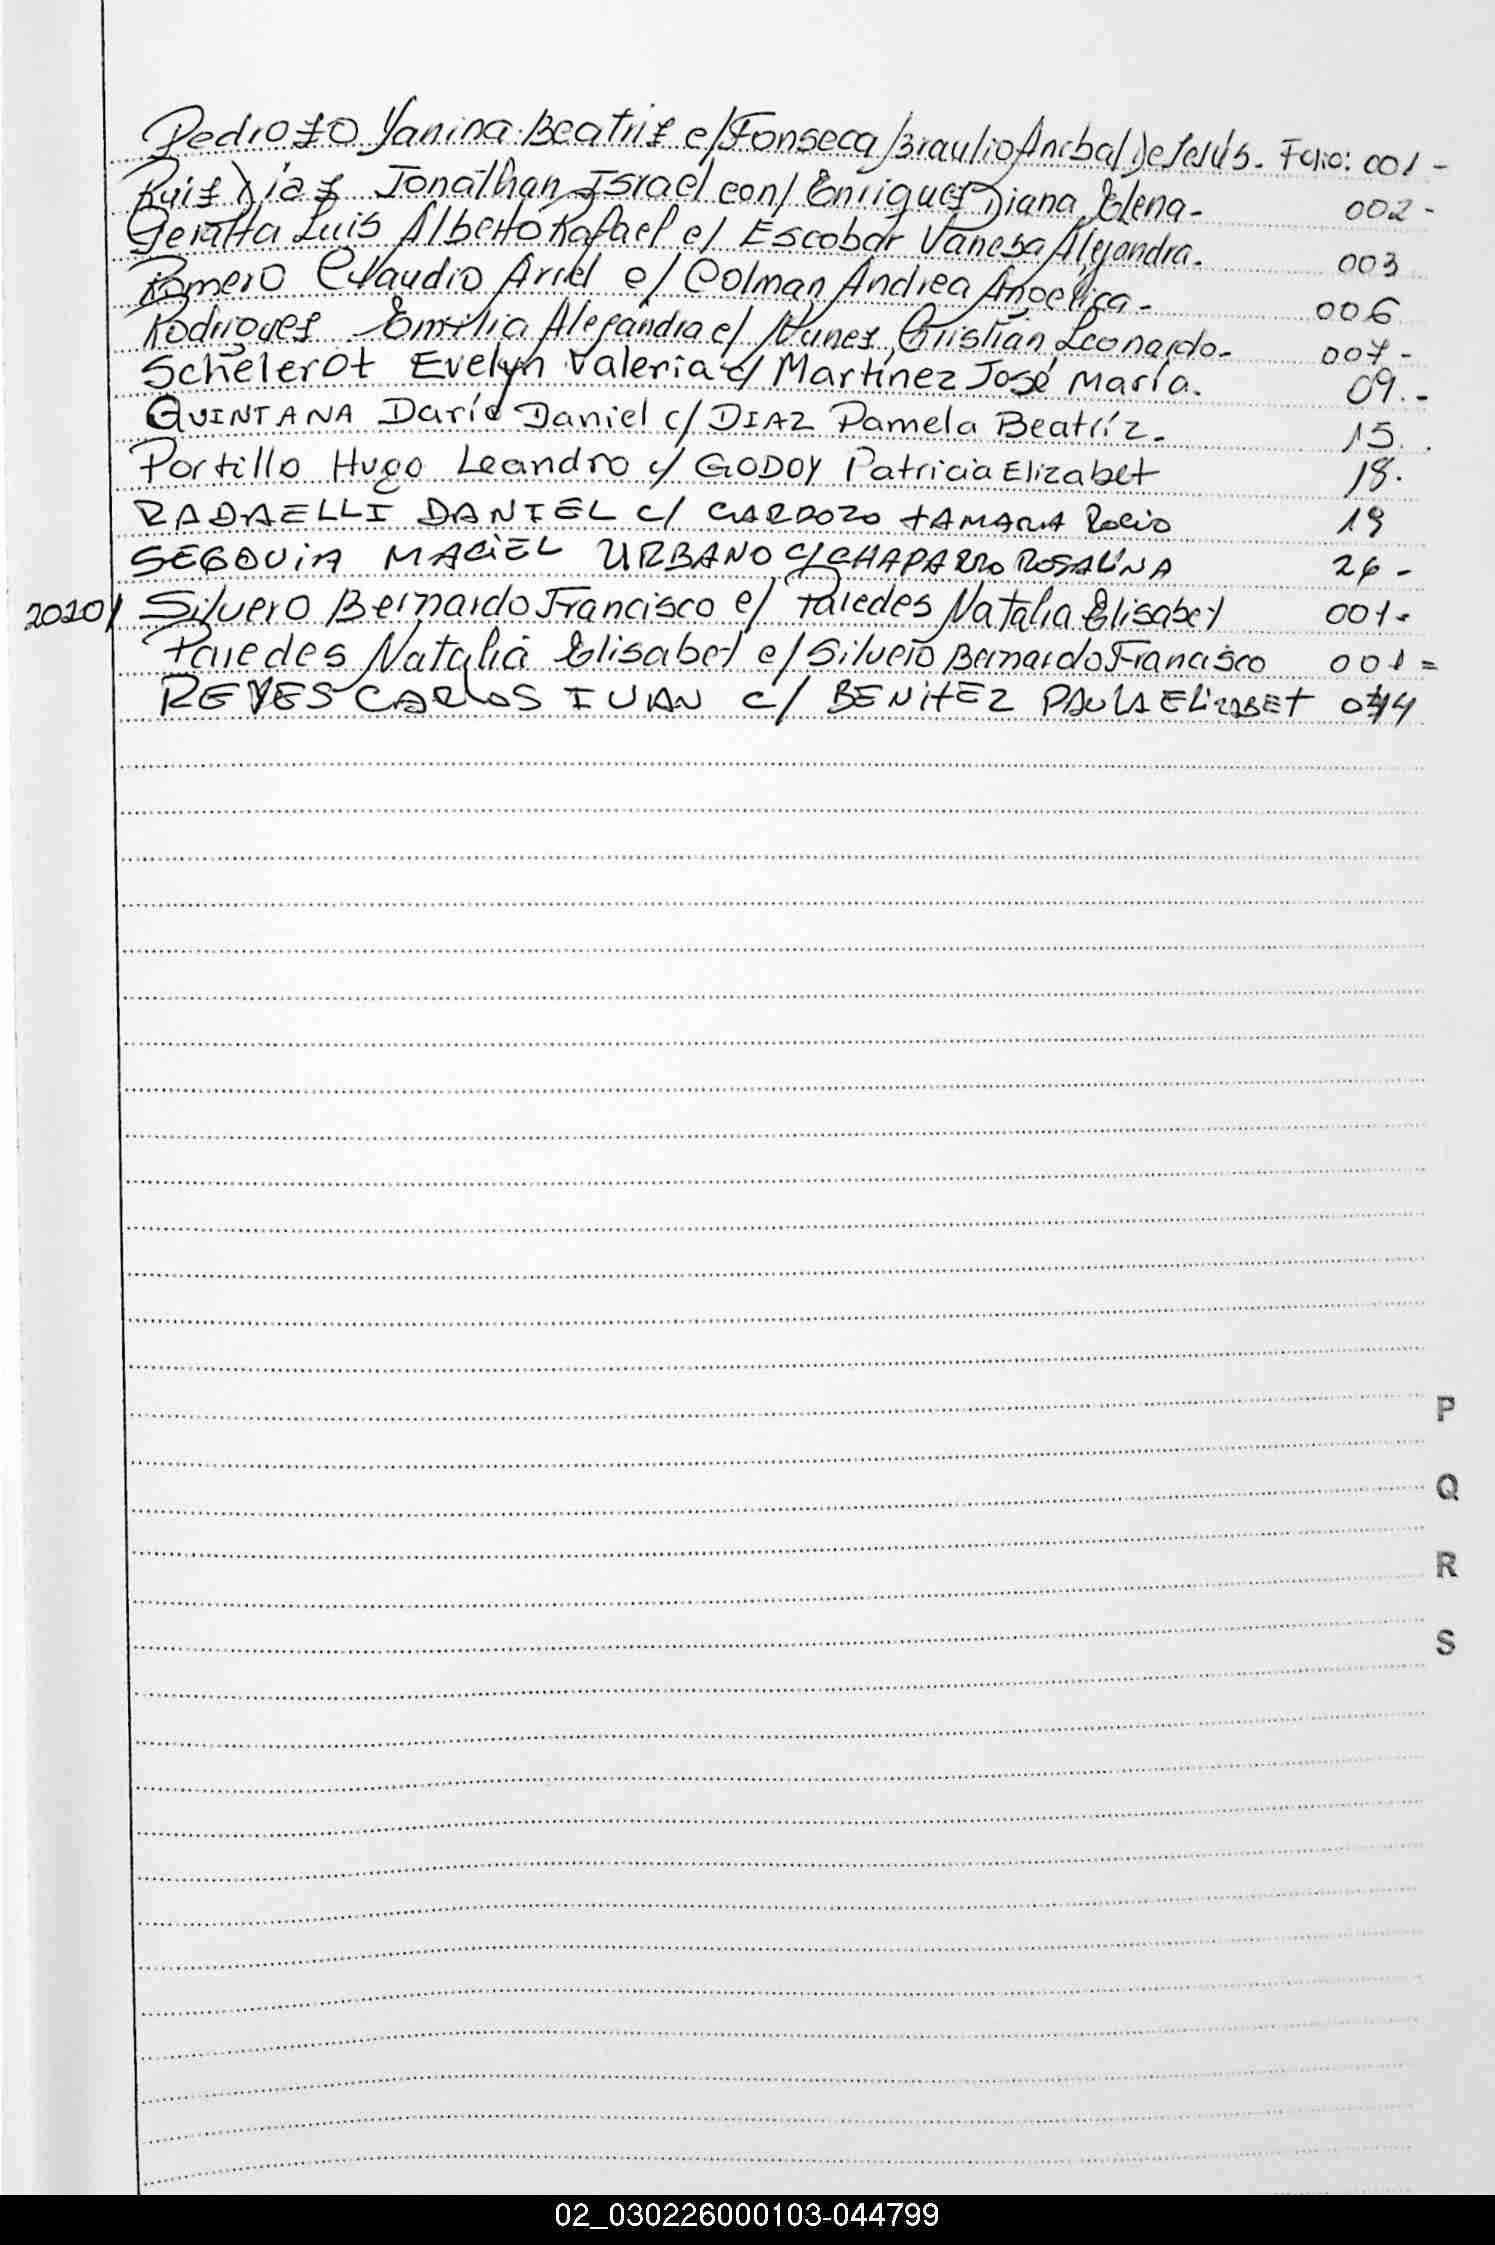 Pedrozo Yanina Beatriz c/ Fonseca Braulio Anibal De Jesús. Folio: 001 -
Ruiz Diaz Jonathan Israel con/ Enriquez Diana Elena - 002 -
Peralta Luis Alberto Rafael c/ Escobar Vanesa Alejandra. 003
Romero Claudio Ariel c/ Colman Andrea Angelica - 006
Rodriguez Emilia Alejandra c/ Nunez Cristian Leonardo - 007 -
Schelerot Evelyn Valeria c/ Martínez José María. 09. -
QUINTANA Darío Daniel c/ DIAZ Pamela Beatríz - 15.
Portillo Hugo Leandro c/ GODOY Patricia Elizabet 18.
RADAELLI DANIEL c/ CARDOZO TAMARA Rocio 19
SEGOVIA MACIEL URBANO c/ CHAPARRO ROSALINA 26 -
2020/ Silvero Bernardo Francisco c/ Paredes Natalia Elisabet 001 -
Paredes Natalia Elisabet c/ Silvero Bernardo Francisco 001 =
REYES CARLOS IVAN c/ BENITEZ PAULA ELIZABET
P
Q
R
S
02_030226000103-044799